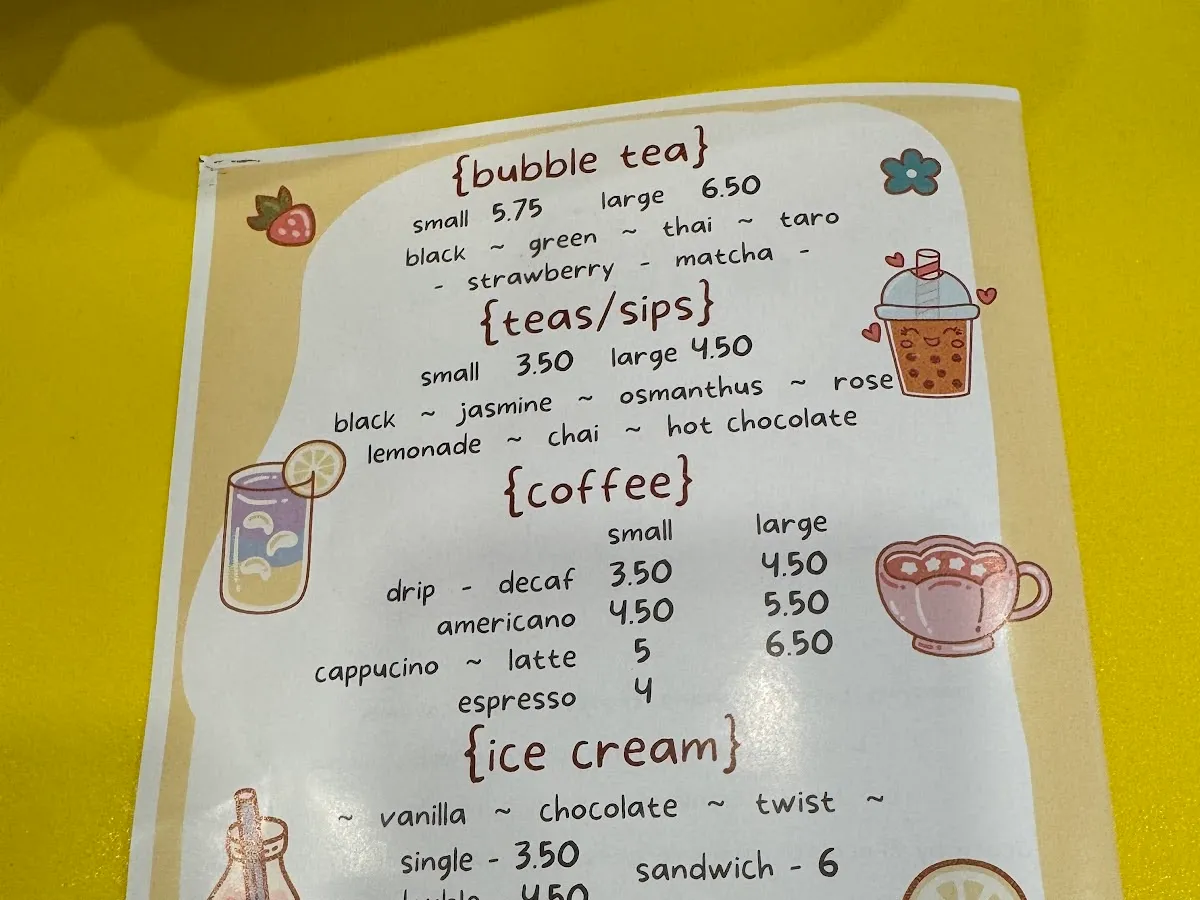 {bubble tea}
small 5.75 large 6.50
black ~ green ~ thai ~ taro
- strawberry - matcha -
{teas/sips}
small 3.50 large 4.50
black ~ jasmine ~ osmanthus ~ rose
lemonade ~ chai ~ hot chocolate
{coffee}
small large
drip - decaf 3.50 4.50
americano 4.50 5.50
cappucino ~ latte 5 6.50
espresso 4
{ice cream}
~ vanilla ~ chocolate ~ twist ~
single - 3.50 sandwich - 6
4.50